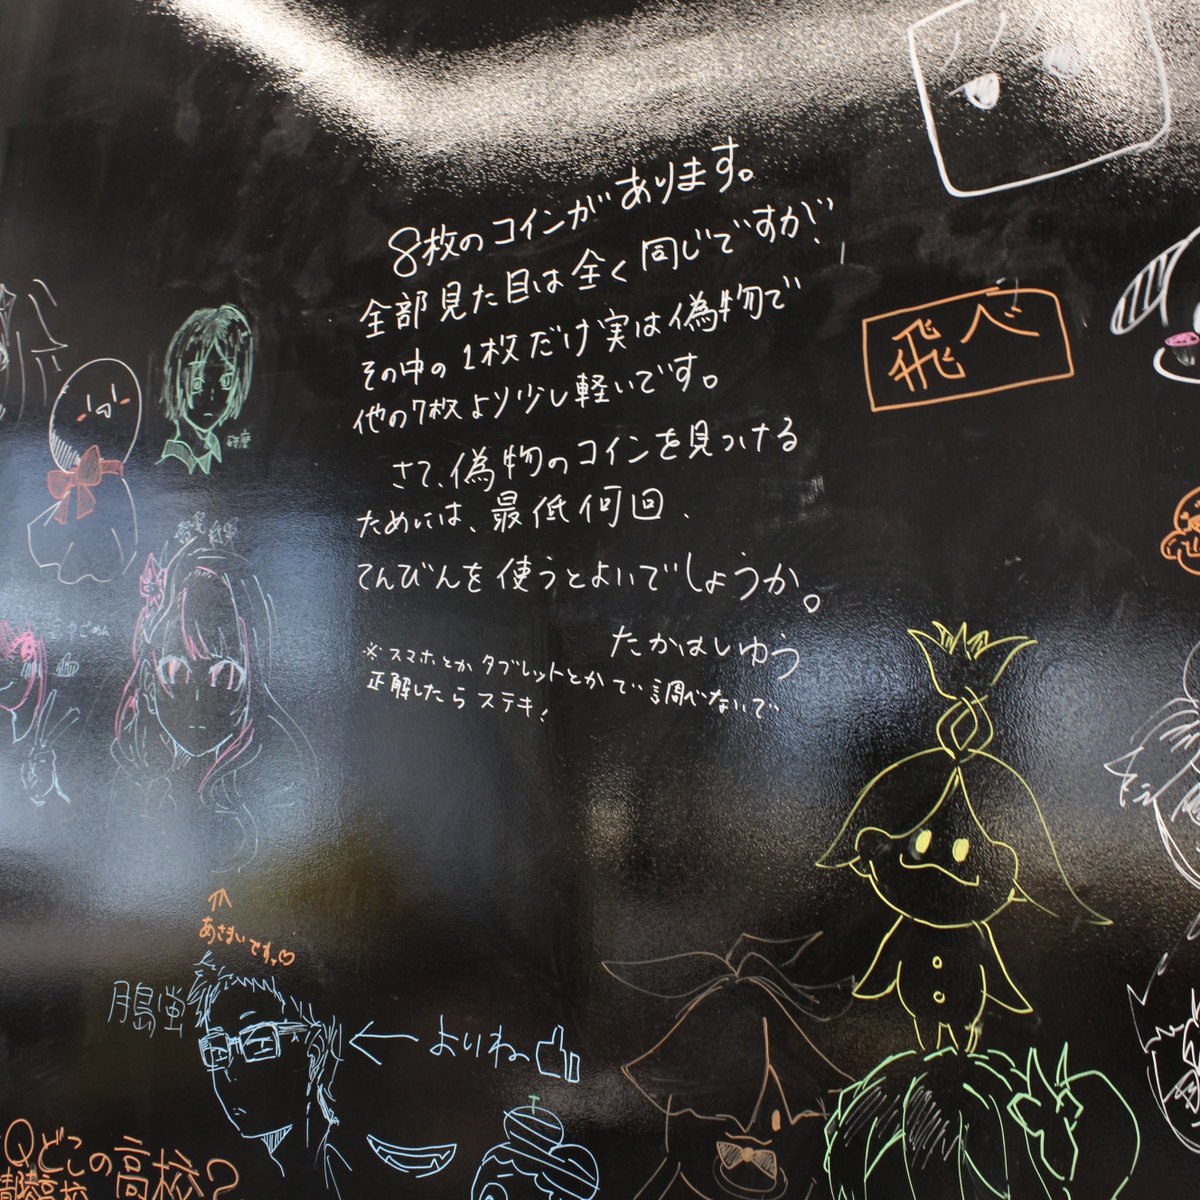 8枚のコインがあります。
全部見た目は全く同じですが、
その中の1枚だけ実は偽物で
他の7枚より少し軽いです。
さて、偽物のコインを見つける
ためには、最低何回、
てんびんを使うとよいでしょうか。
たかはしゆう
※スマホとかタブレットとかで調べないで
正解したらステキ!
飛べ
研磨
あさまいですっ♡
月島蛍
よいね
Qどこの高校?
青陵高校